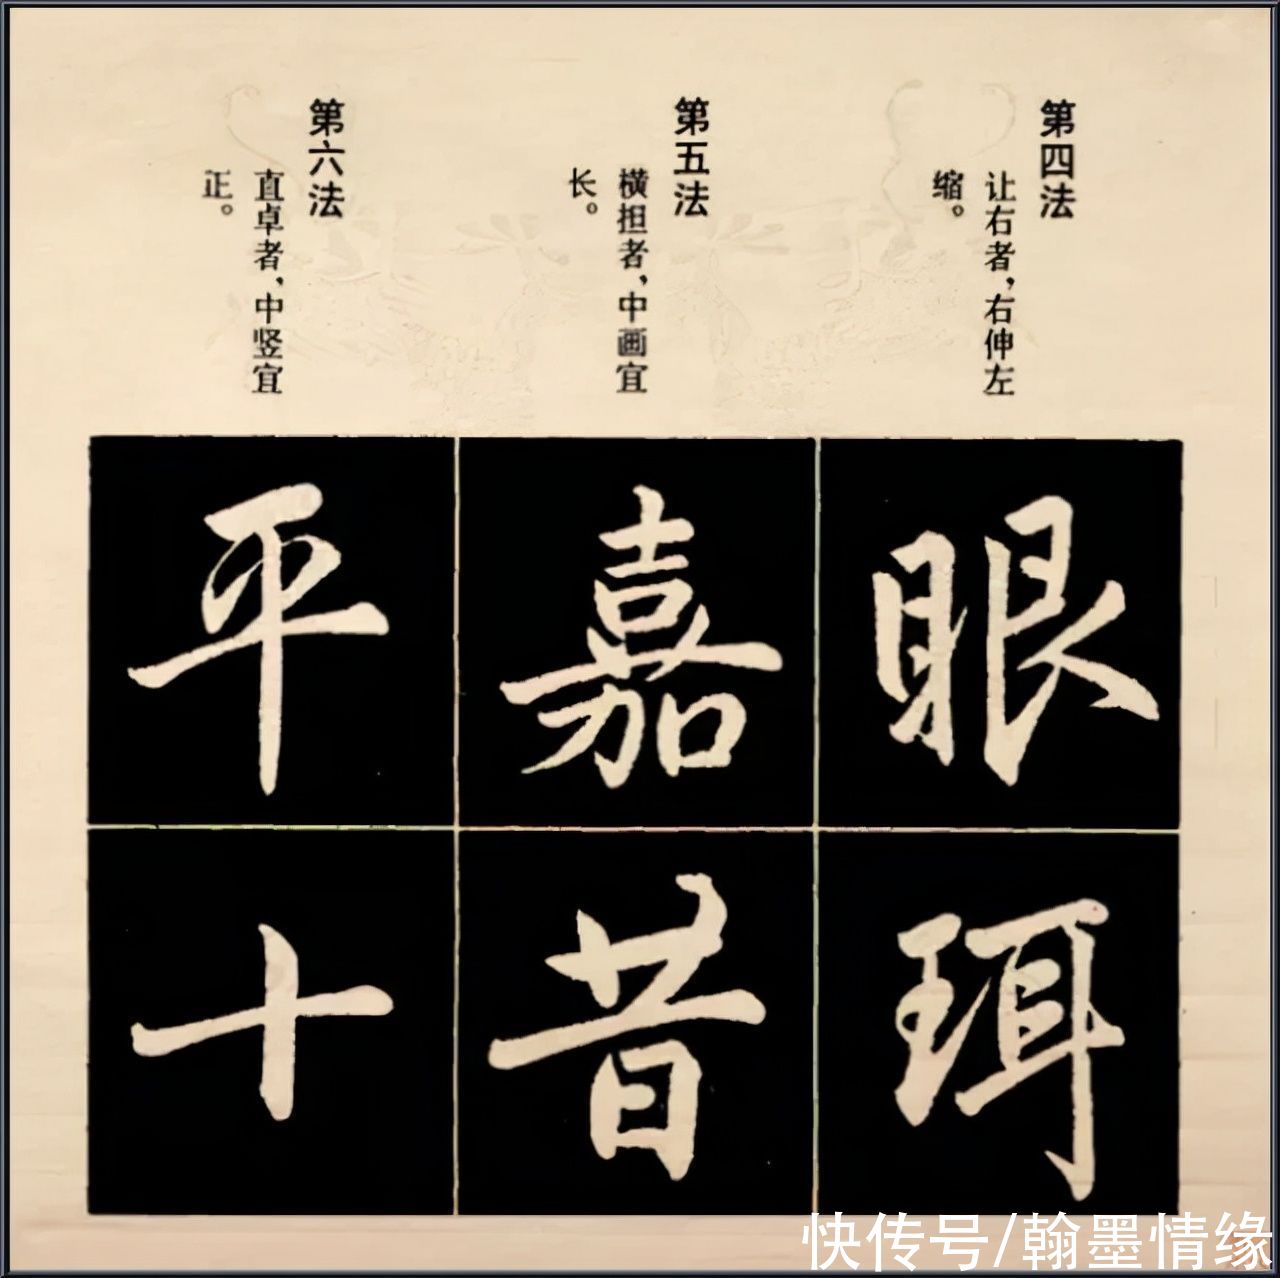 第四法
让右者，右伸左
缩。
第五法
横担者，中画宜
长。
第六法
直卓者，中竖宜
正。
眼
珥
嘉
昔
平
十
快传号/翰墨情缘